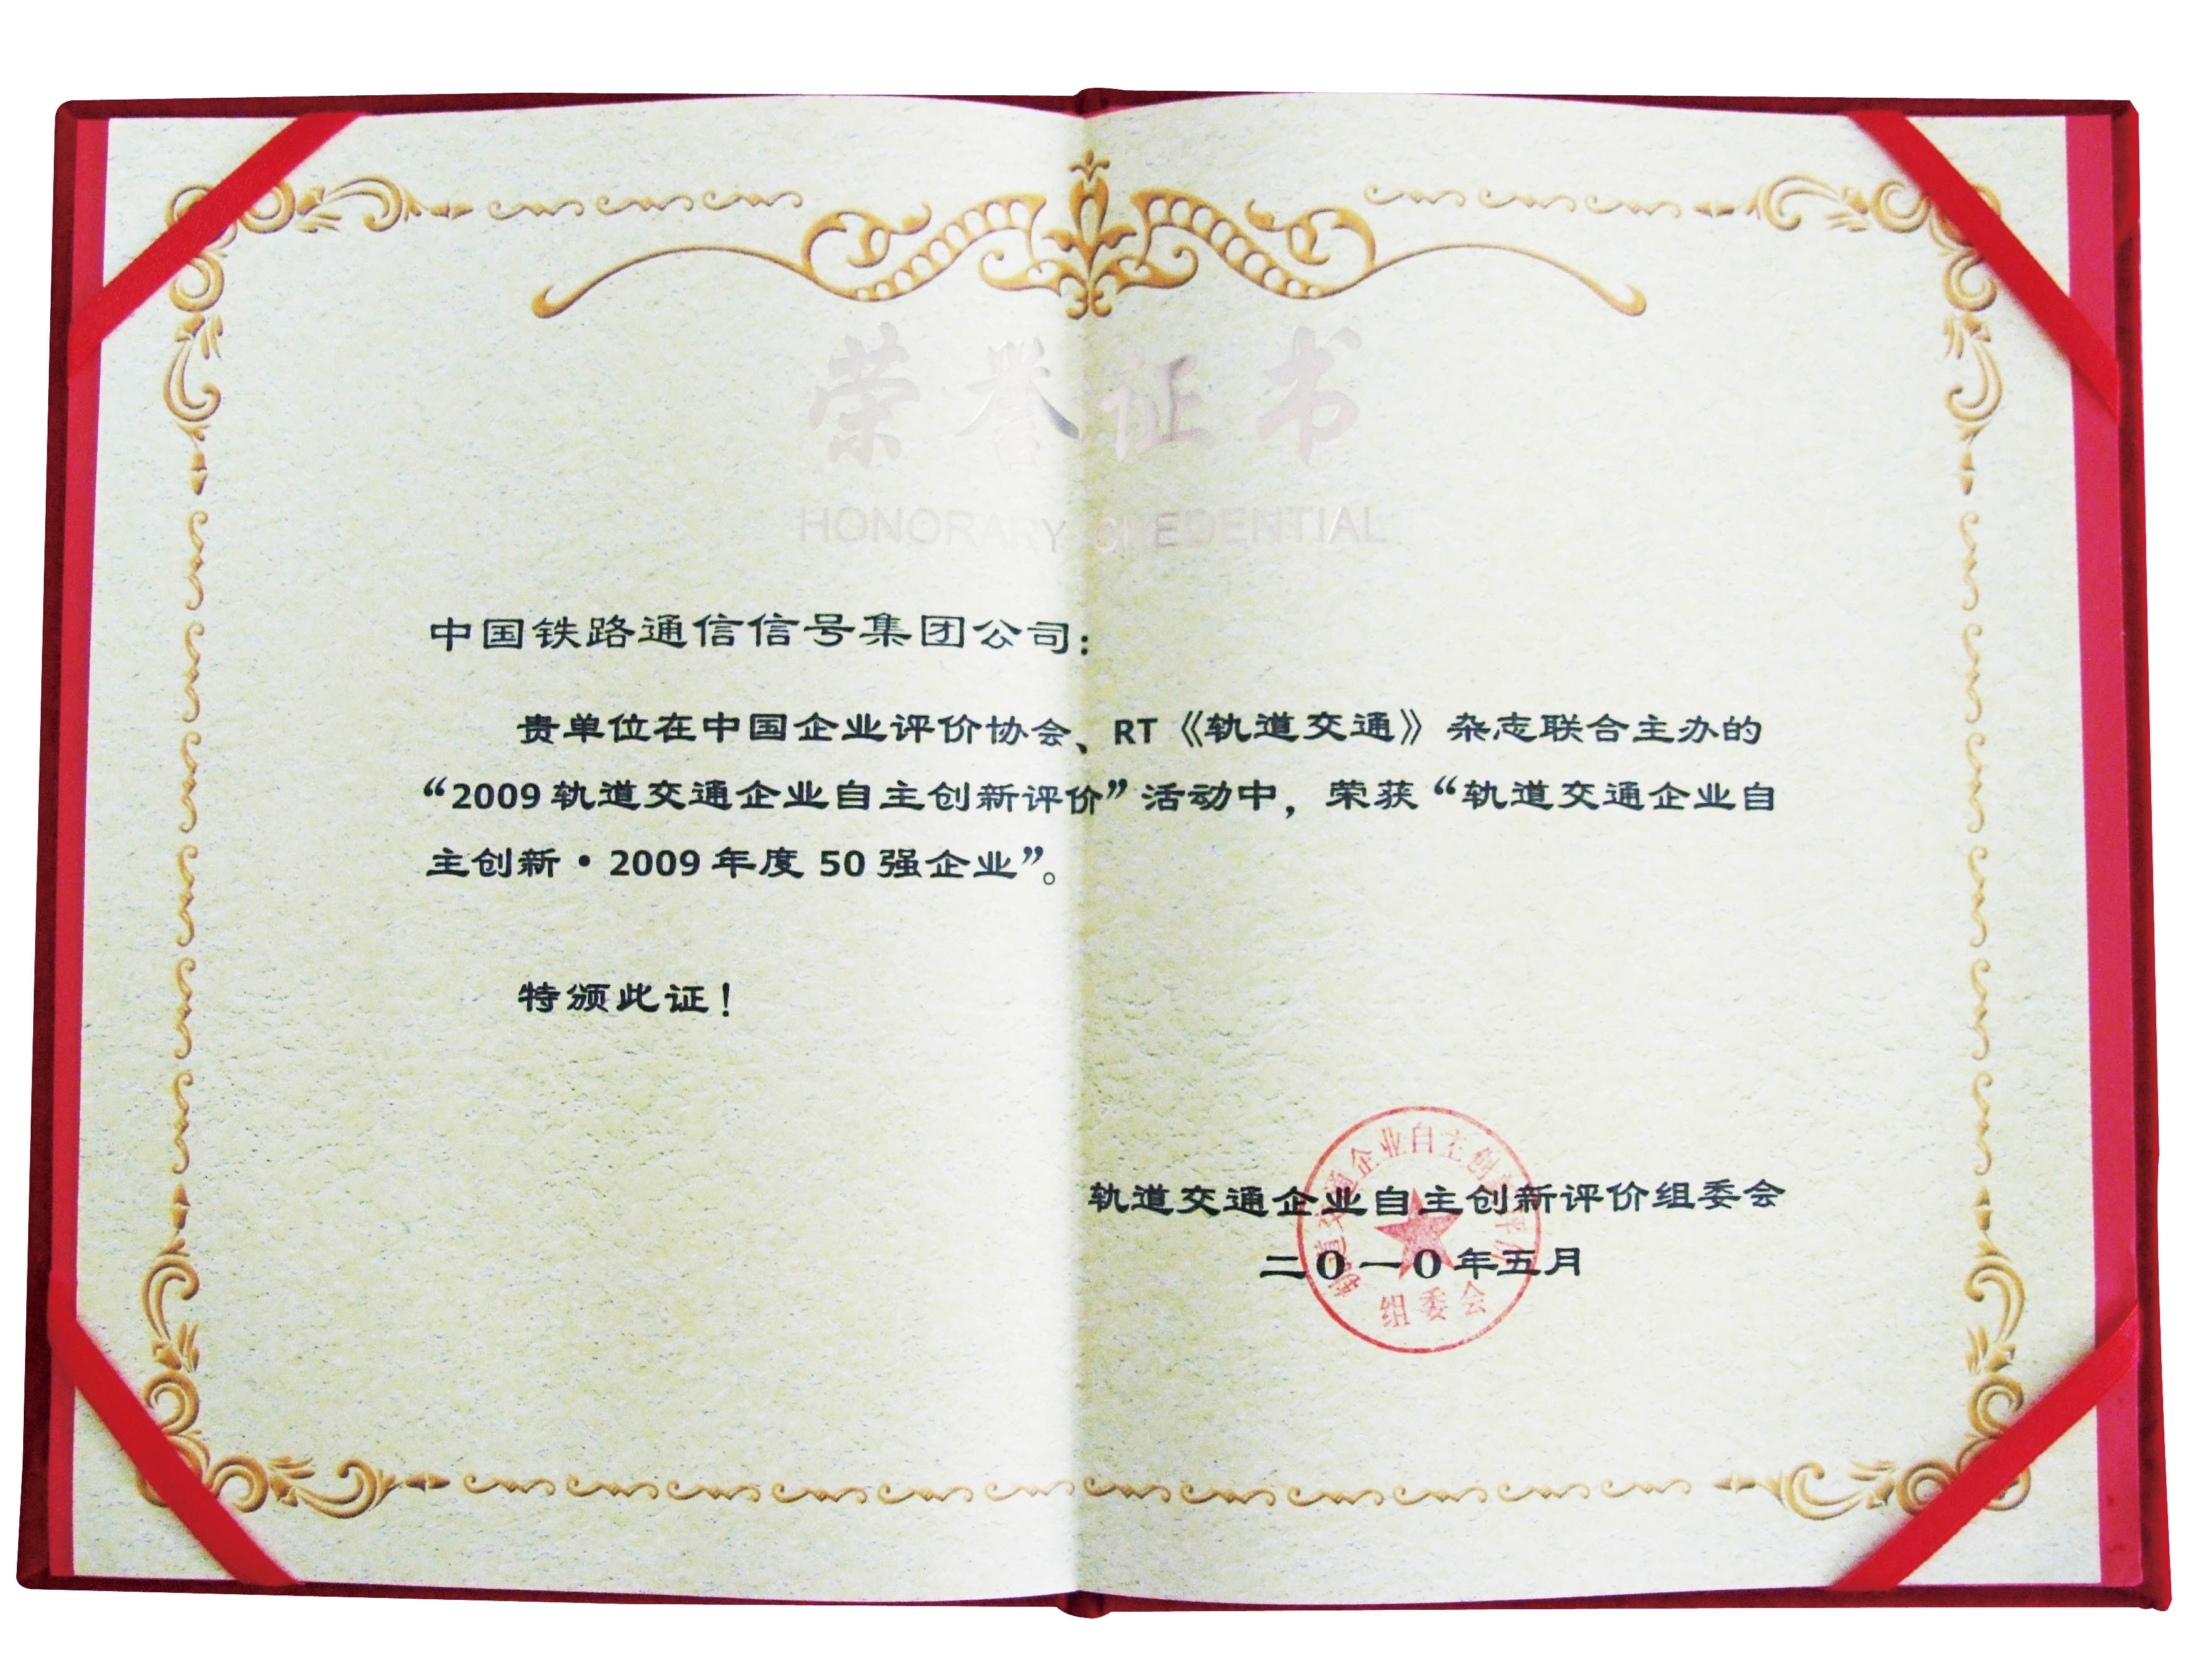 荣誉证书
HONORARY CREDENTIAL
中国铁路通信信号集团公司：
贵单位在中国企业评价协会、RT《轨道交通》杂志联合主办的
“2009轨道交通企业自主创新评价”活动中，荣获“轨道交通企业自
主创新·2009年度50强企业”。
特颁此证！
轨道交通企业自主创新评价组委会
二〇一〇年五月
轨道交通企业自主创新评价
组委会